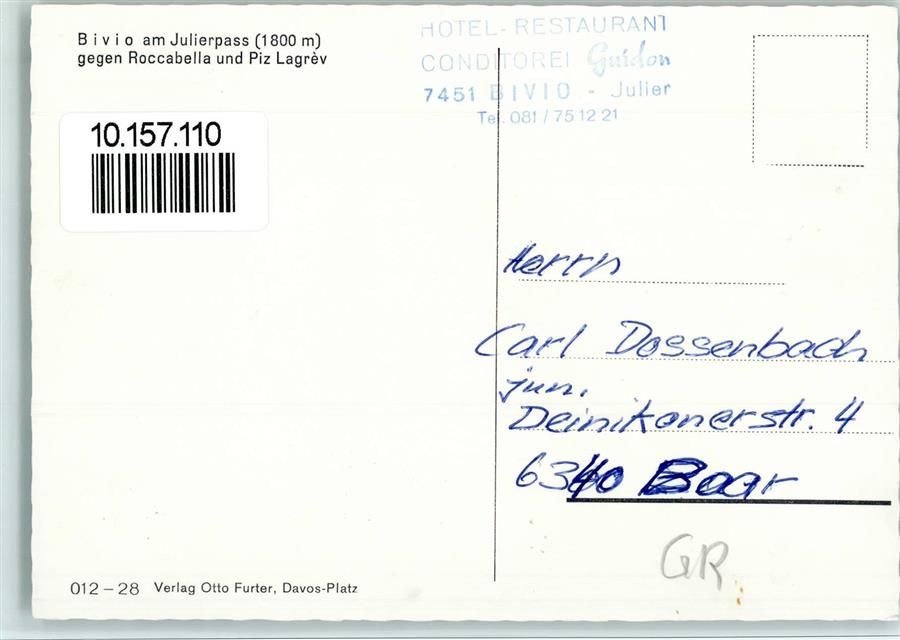 Bivio am Julierpass (1800 m)
gegen Roccabella und Piz Lagrèv
10.157.110
HOTEL-RESTAURANT
CONDITOREI Guidon
7451 BIVIO - Julier
Tel. 081 / 75 12 21
Herrn
Carl Dossenbach
jun.
Deinikonerstr. 4
6340 Baar
GR
012 – 28 Verlag Otto Furter, Davos-Platz